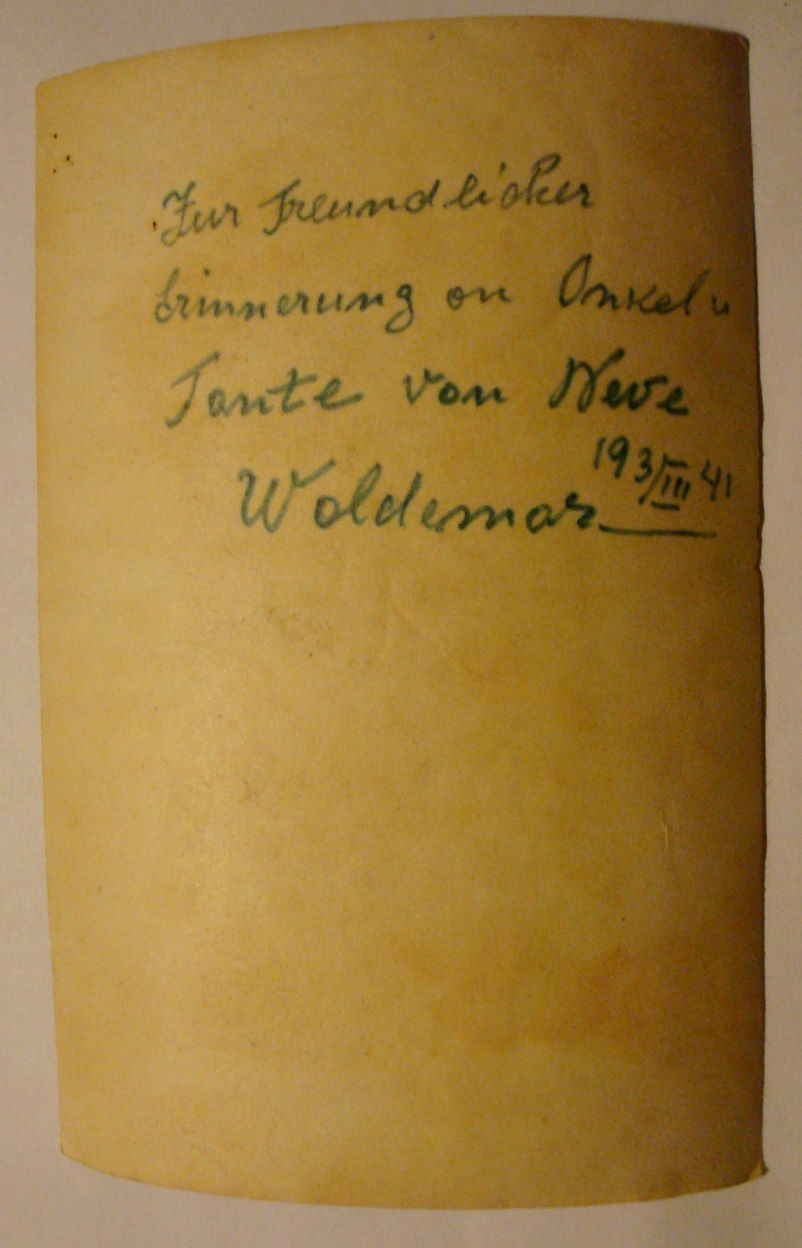 Zur Freundlicher
Erinnerung an Onkel u
Tante von Neve
Woldemar
193/III 41